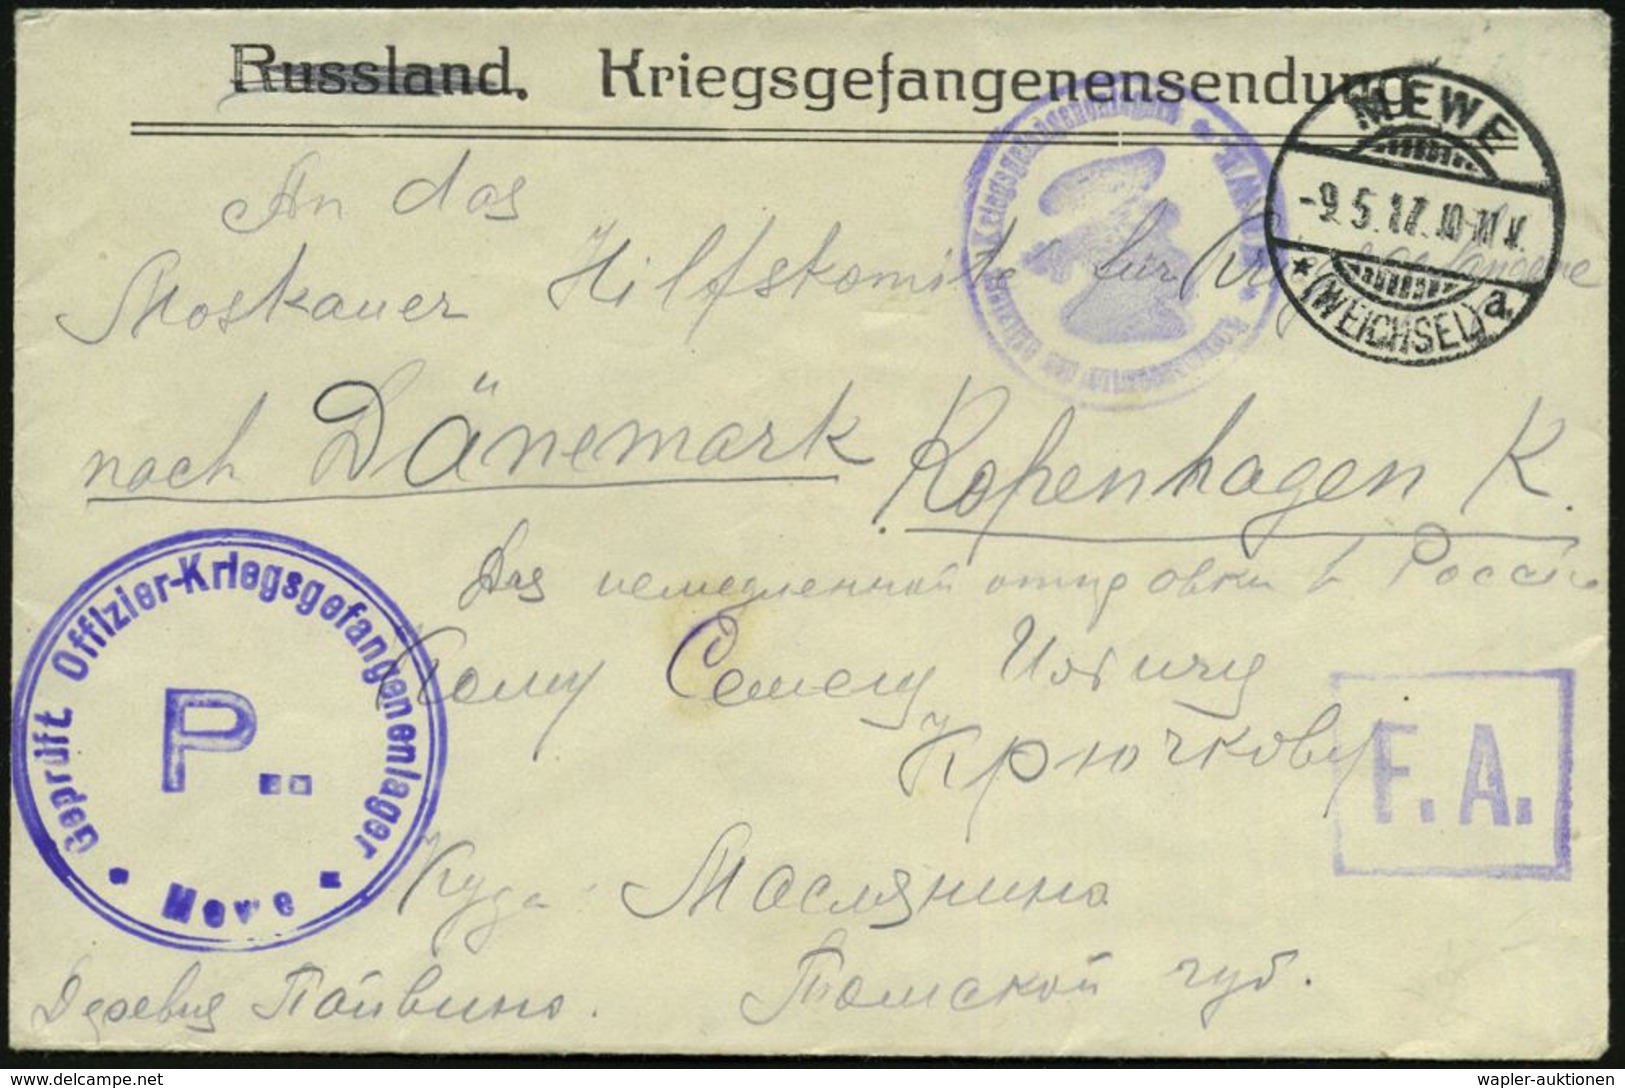 Russland. Kriegsgefangenensendung
MEWE
-9.5.17.10-11 V.
* (WEICHSEL) a.
An das
Moskauer Hilfskomite für Kriegsgefangene
nach Dänemark Kopenhagen K.
Для немедленной отправки в Россию
Кому Семену
Крючкову
Куда Маслянино
Томской губ.
Деревня Пайвино.
Geprüft Offizier-Kriegsgefangenenlager
P...
Mewe
F.A.
wapler-auktionen